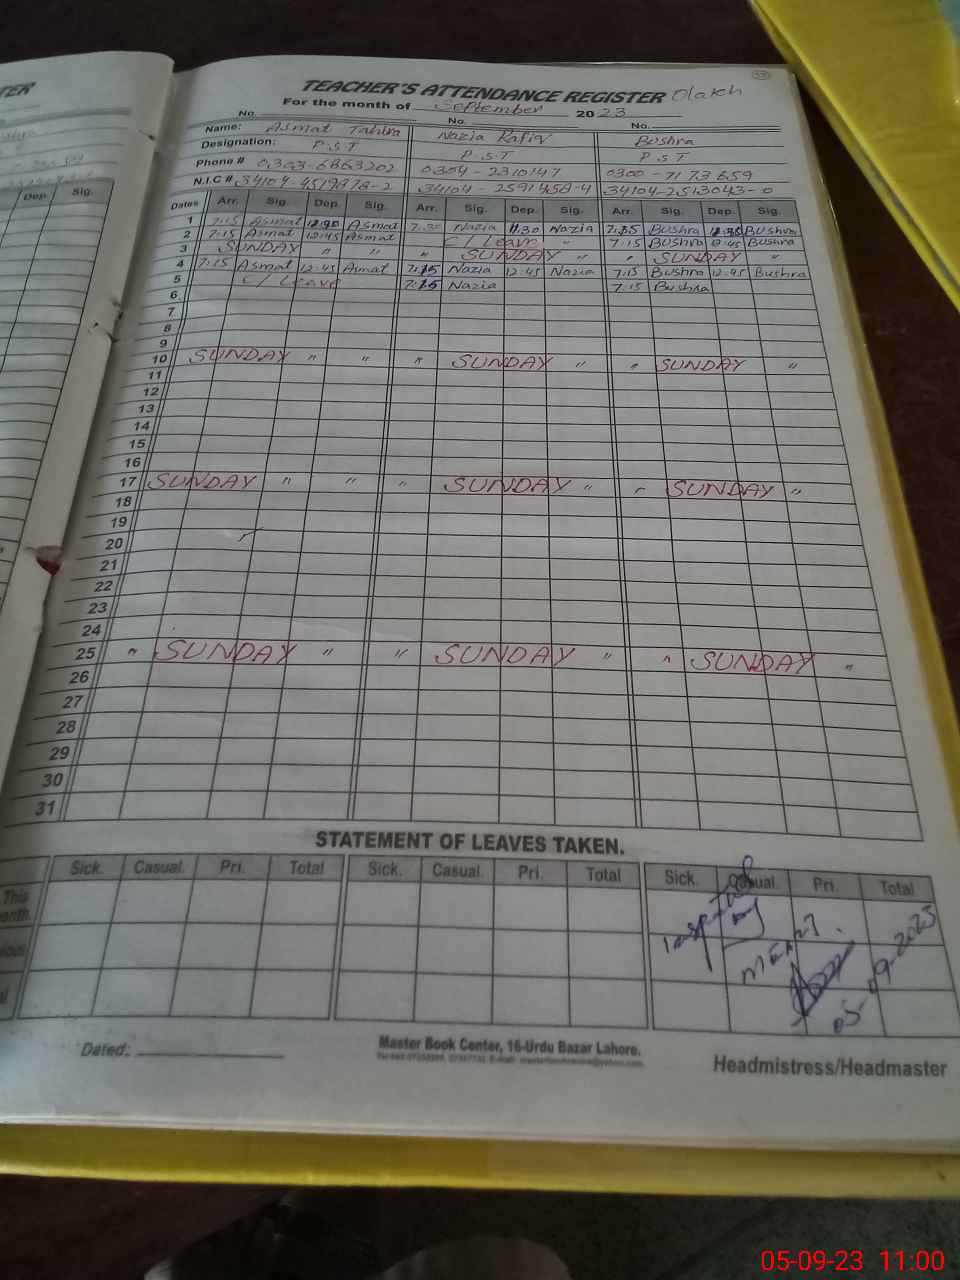 TEACHER'S ATTENDANCE REGISTER
For the month of September 2023
No. No. No.
Name: Asmat Tahira Nazia Rafiq Bushra
Designation: P.S.T P.S.T P.S.T
Phone # 0303-6863202 0304-2310147 0300-7173659
N.I.C # 34104-4519878-2 34104-2591458-4 34104-2513043-0
Dates Arr. Sig. Dep. Sig. Arr. Sig. Dep. Sig. Arr. Sig. Dep. Sig.
1 7:15 Asmat Asmat Nazia 11:30 Nazia Bushra Bushra
2 7:15 Asmat 12:45 Asmat C/ Leave " 7:15 Bushra 12:45 Bushra
3 SUNDAY " " " SUNDAY " " SUNDAY "
4 7:15 Asmat 12:45 Asmat 7:15 Nazia 12:45 Nazia 7:15 Bushra 12:45 Bushra
5 C/ Leave 7:15 Nazia 7:15 Bushra
6
7
8
9
10 SUNDAY " " " SUNDAY " " SUNDAY "
11
12
13
14
15
16
17 SUNDAY " " " SUNDAY " " SUNDAY "
18
19
20
21
22
23
24
25 " SUNDAY " " SUNDAY " " SUNDAY "
26
27
28
29
30
31
STATEMENT OF LEAVES TAKEN.
Sick. Casual. Pri. Total Sick. Casual. Pri. Total Sick. Casual. Pri. Total
This
by
05-09-2023
Dated:
Master Book Center, 16-Urdu Bazar Lahore.
Headmistress/Headmaster
05-09-23 11:00